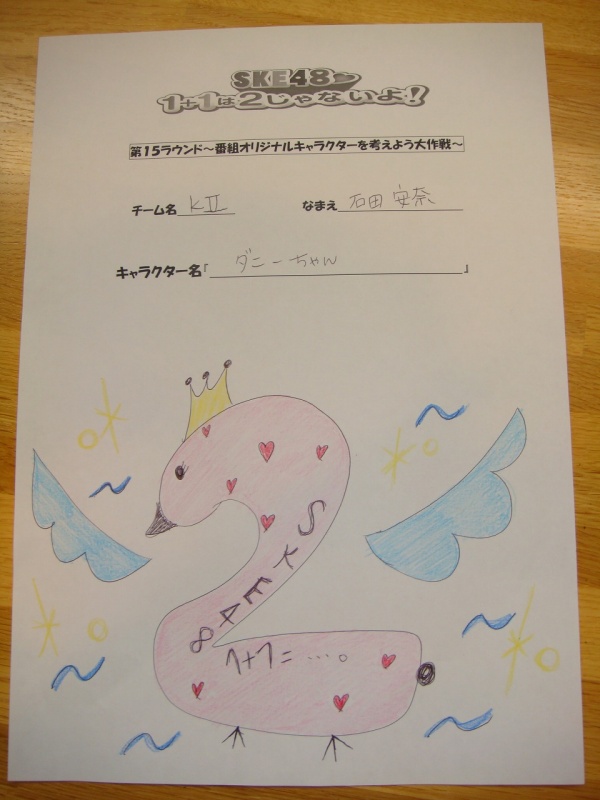 SKE48
1+1は2じゃないよ!
第15ラウンド～番組オリジナルキャラクターを考えよう大作戦～
チーム名 KⅡ なまえ 石田 安奈
キャラクター名『 ダニーちゃん 』
SKE48
1+1=…。